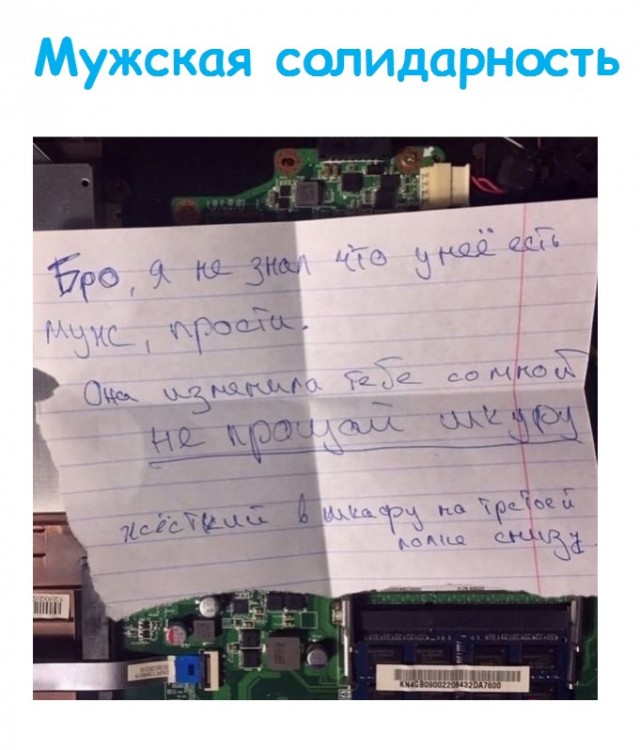 Мужская солидарность
Бро, я не знал что у неё есть
муж, прости.
Она изменила тебе со мной
не прощай шкуру
жёсткий в шкафу на третьей
полке снизу
KN4GB0900220432DA7600